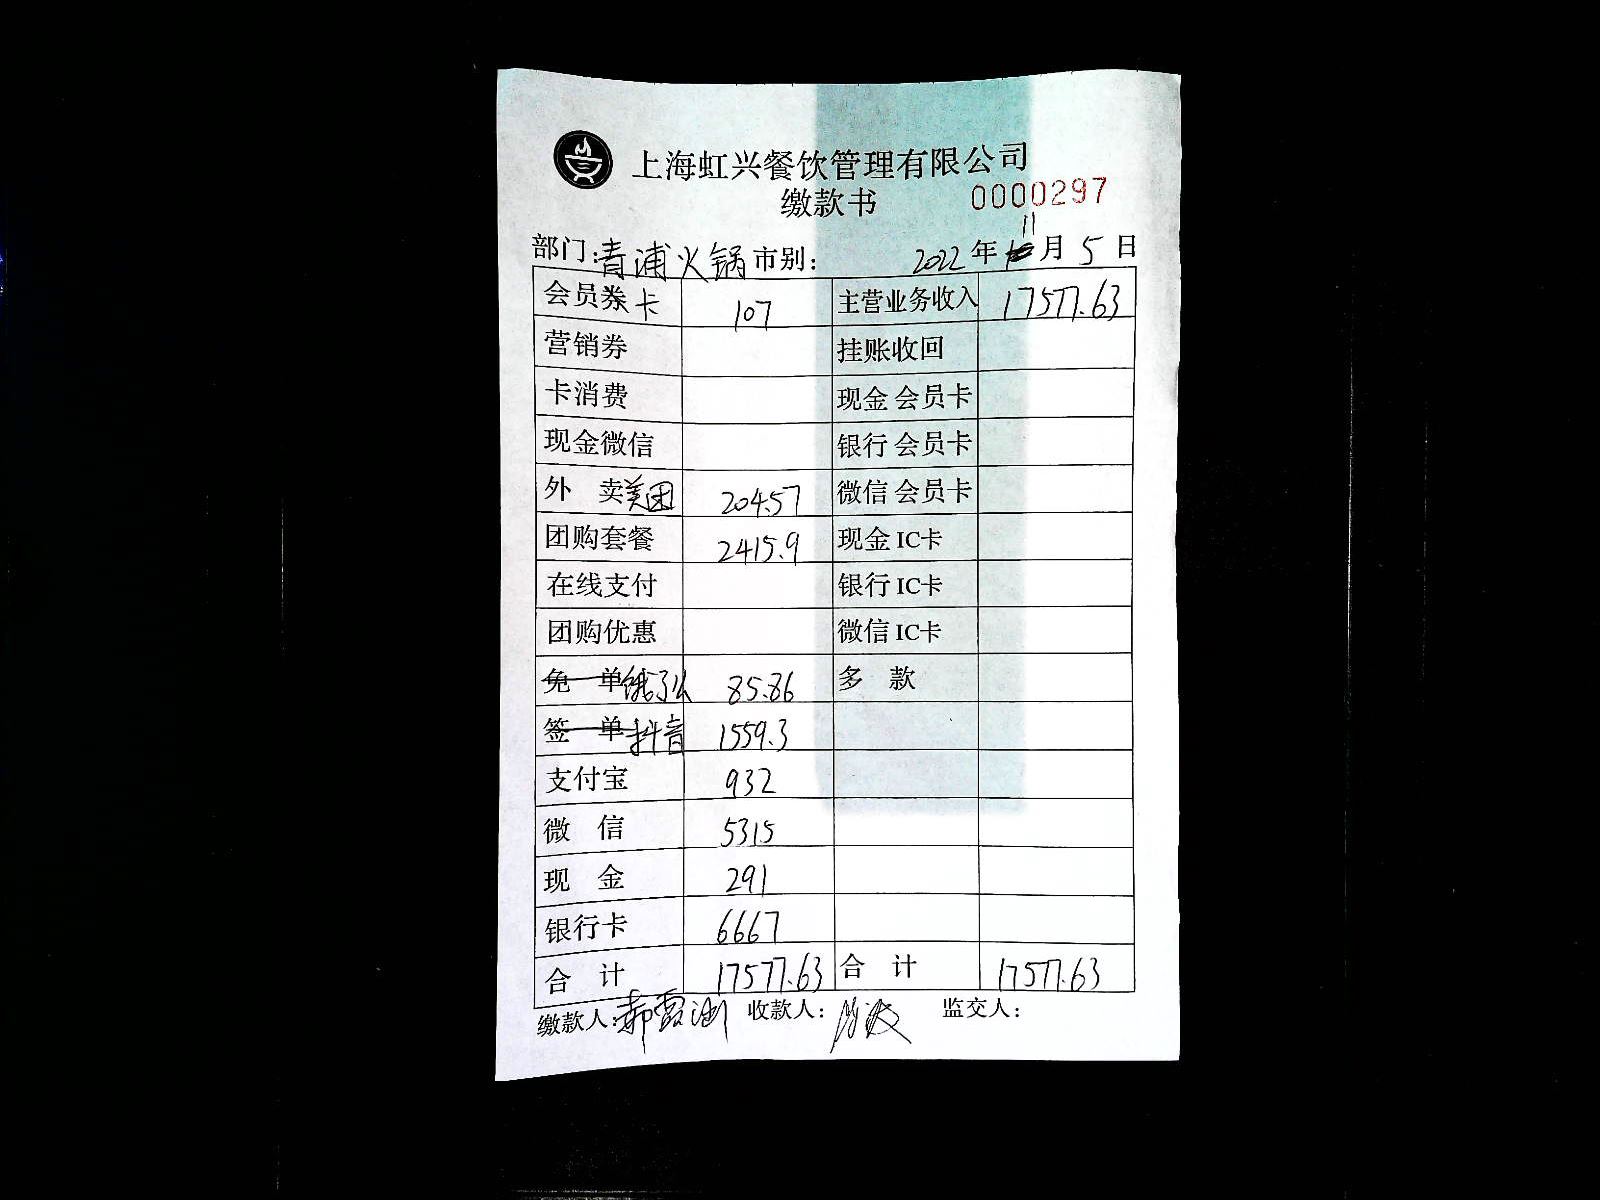 上海虹兴餐饮管理有限公司
缴款书 0000297
部门:青浦火锅 市别: 2022年11月5日
会员券卡 107 主营业务收入 17577.63
营销券 挂账收回
卡消费 现金会员卡
现金微信 银行会员卡
外 卖美团 204.57 微信会员卡
团购套餐 2415.9 现金IC卡
在线支付 银行IC卡
团购优惠 微信IC卡
免 单饿了么 85.86 多 款
签 单抖音 1559.3
支付宝 932
微 信 5315
现 金 291
银行卡 6667
合 计 17577.63 合 计 17577.63
缴款人: 收款人: 监交人: